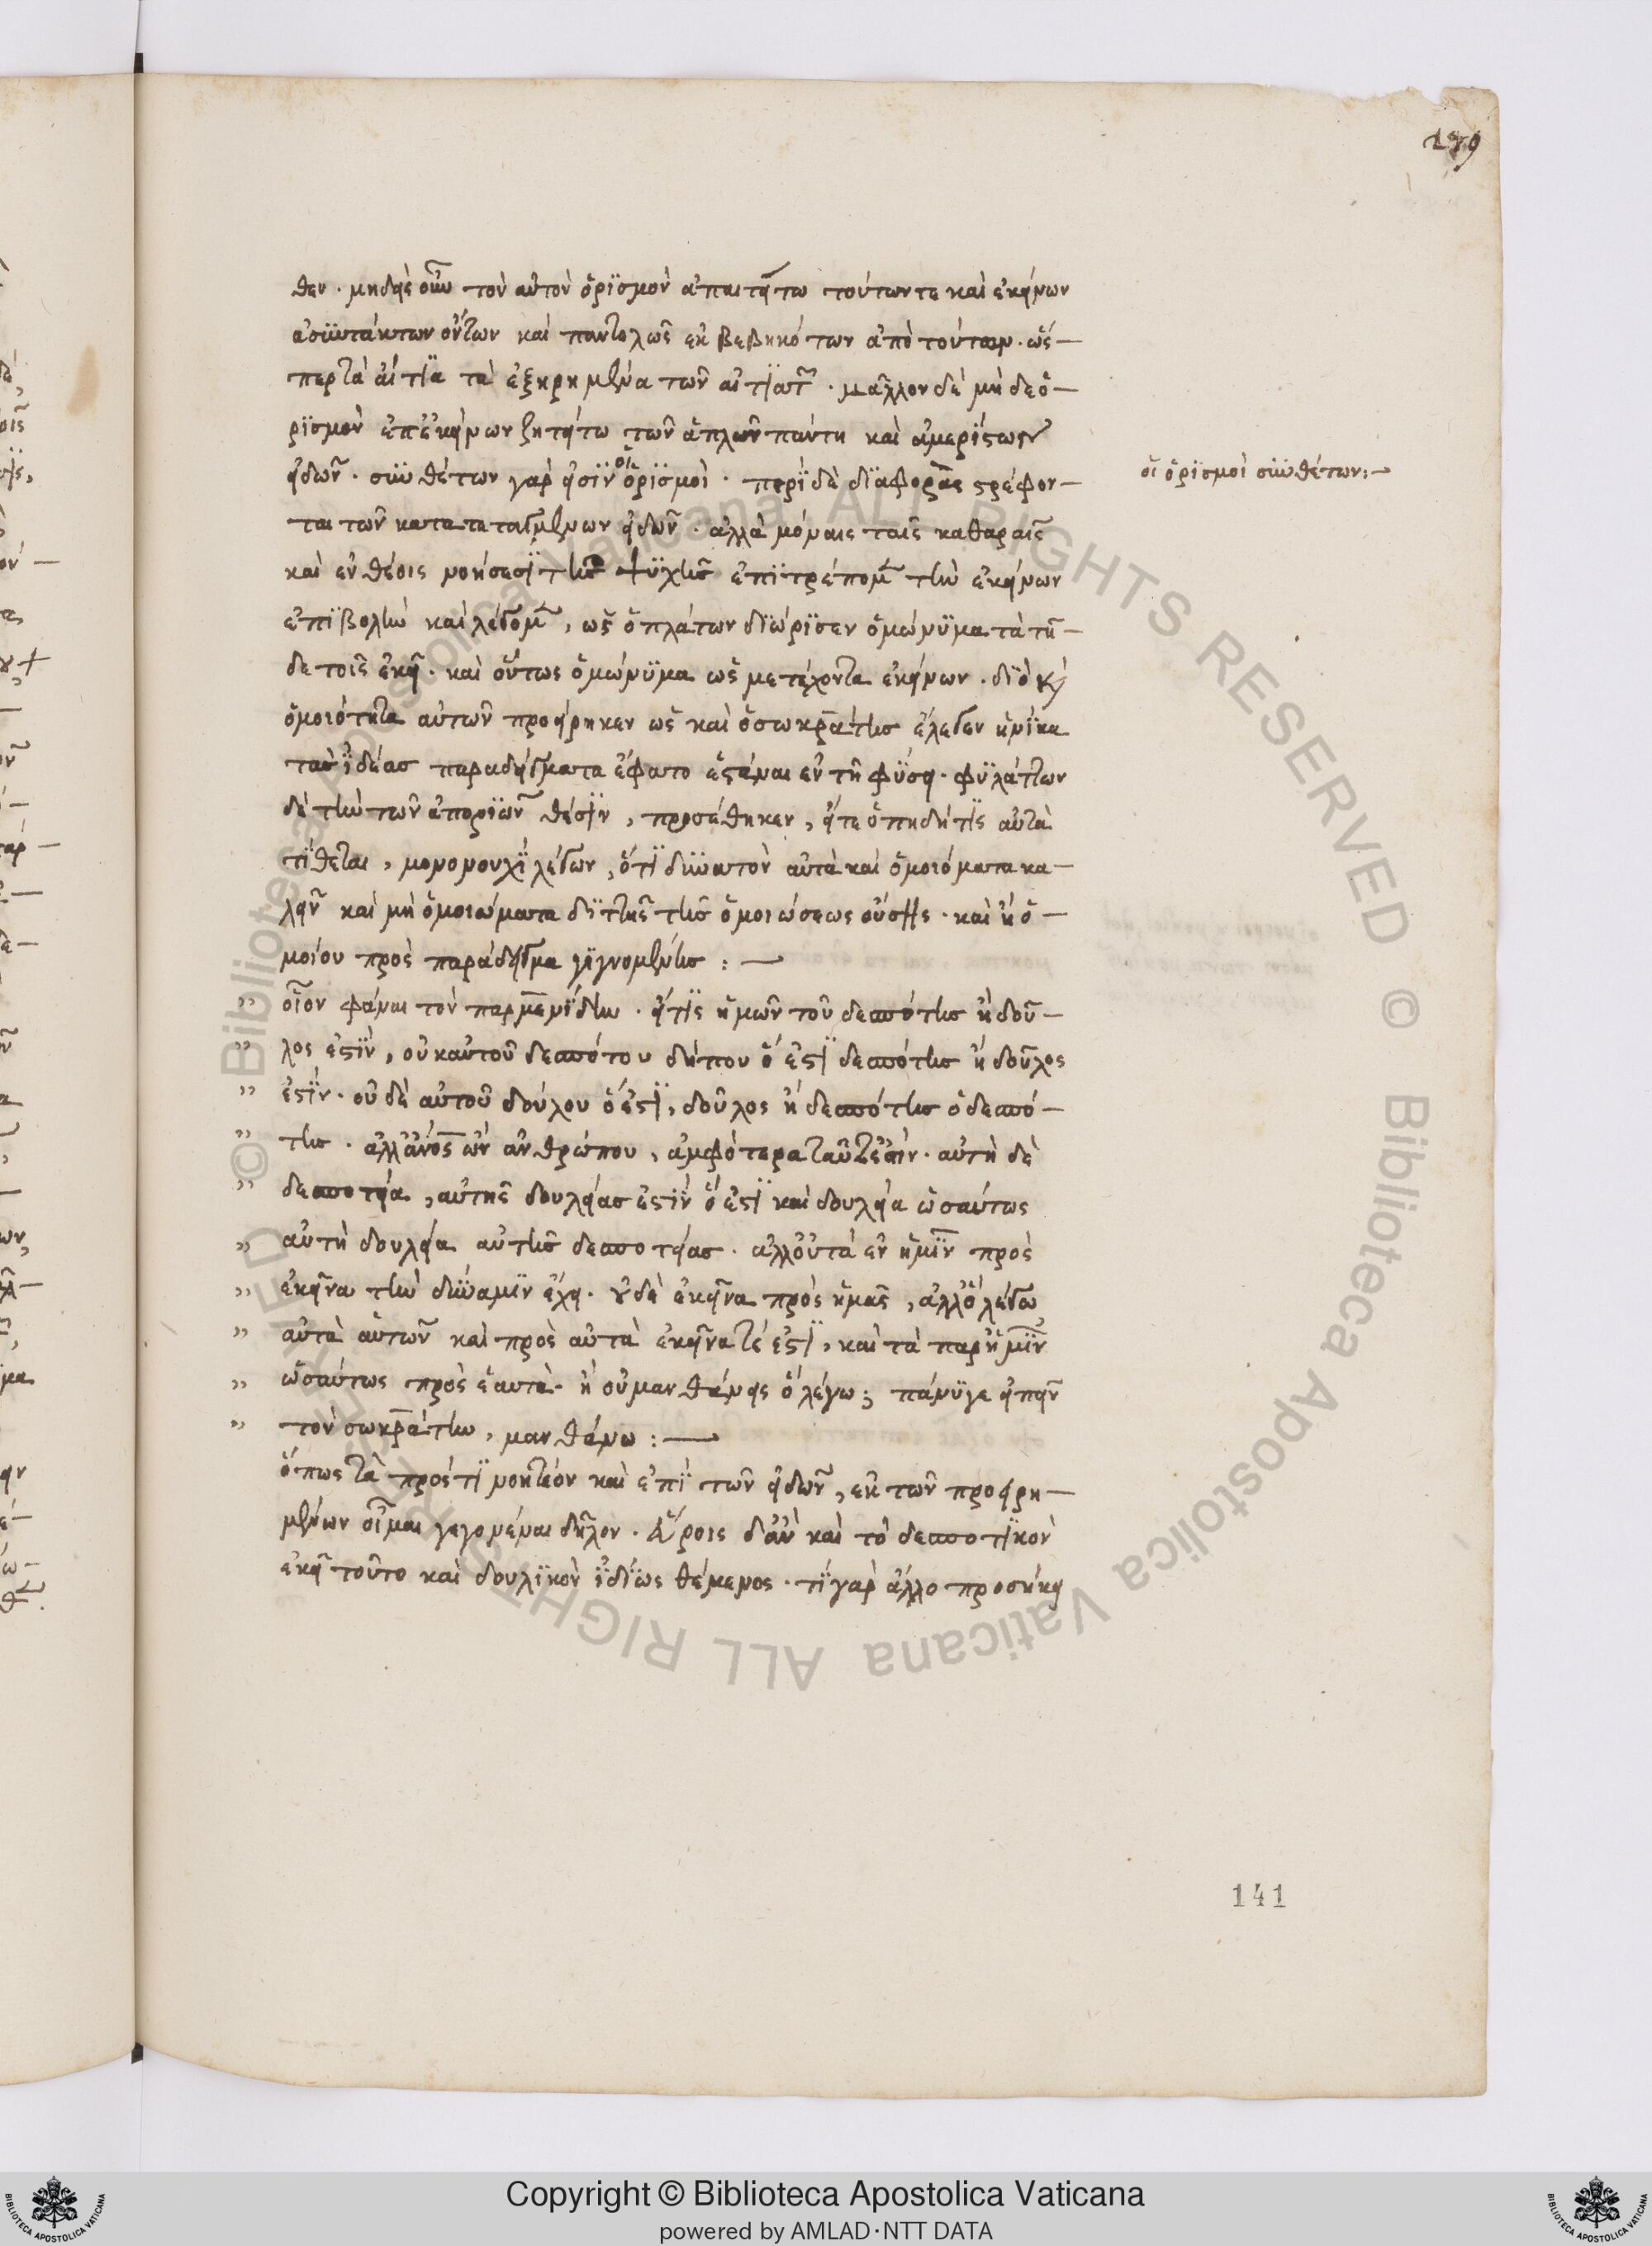 179
θεν · μηδεὶς οὖν τὸν αὐτὸν ὁρϊσμὸν ἀπαιτείτω τούτων τε καὶ ἐκείνων
ἀσυντάκτων ὄντων καὶ παντελῶς ἐκβεβηκότων ἀπὸ τούτων · ὥς-
περ τὰ αἴτϊα τὰ ἐξῃρημένα τῶν αἰτϊατῶν · μᾶλλον δὲ μὴ δε ὁ-
ρϊσμὸν ἐπ' ἐκείνων ζητείτω τῶν ἁπλῶν πάντη καὶ ἀμερίστων
εἰδῶν · συνθέτων γάρ εἰσϊν οἱ ὁρϊσμοὶ · περὶ δὲ δϊαφορὰς στρέφον-
οἱ ὁρϊσμοὶ συνθέτων:-
ται τῶν κατατεταγμένων εἰδῶν · ἀλλὰ μόναις ταῖς καθαραῖς
καὶ ἐνθέοις νοήσεσϊ τῆς ψυχῆς ἐπϊτρέπομεν τὴν ἐκείνων
ἐπϊβολὴν καὶ λέγομεν, ὡς ὁ πλάτων δϊώρϊσεν ὁμώνϋμα τὰ τῆ-
δε τοῖς ἐκεῖ · καὶ οὕτως ὁμώνϋμα ὡς μετέχοντα ἐκείνων · δϊὸ καὶ
ὁμοιότητα αὐτῶν προείρηκεν ὡς καὶ ὁ σωκράτης ἔλεγεν ἡνίκα
τὰς ἰδέας παραδείγματα ἔφατο ἑστάναι ἐν τῇ φύσει · φϋλάττων
δὲ τὴν τῶν ἀποριῶν θέσϊν, προσέθηκεν, εἴτε ὅπη δή τϊς αὐτὰ
τϊθεται, μονονουχὶ λέγων, ὅτϊ δυνατὸν αὐτὰ καὶ ὁμοιόματα κα-
λεῖν καὶ μὴ ὁμοιώματα δϊττῆς τῆς ὁμοιώσεως οὔσης · καὶ ἡ ὁ-
μοίου πρὸς παράδειγμα γϊγνομένης : —
" οἷον φάναι τὸν παρμενίδην · εἴ τϊς ἡμῶν τοῦ δεσπότης ἢ δοῦ-
" λος ἐστϊν, οὐκ αὐτοῦ δεσπότου δήπου ὅ ἐστϊ δεσπότης ἢ δοῦλος
" ἐστϊν · οὐδὲ αὐτοῦ δούλου ὅ ἐστϊ, δοῦλος ἢ δεσπότης ὁ δεσπό-
" της · ἀλλ' ἄνος ὢν ἀνθρώπου, ἀμφότερα ταῦτ' ἐστιν · αὐτὴ δὲ
" δεσποτεία, αὐτῆς δουλείας ἐστϊν ὅ ἐστϊ καὶ δουλεία ὡσαύτως
" αὐτὴ δουλεία αὐτῆς δεσποτείας · ἀλλ' οὐ τὰ ἐν ἡμῖν πρὸς
" ἐκεῖνα τὴν δύναμϊν ἔχει · οὐδὲ ἐκεῖνα πρὸς ἡμᾶς, ἀλλ' ὃ λέγω
" αὐτὰ αὑτῶν καὶ πρὸς αὑτὰ ἐκεῖνα τέ ἐστϊ, καὶ τὰ παρ' ἡμῖν
" ὡσαύτως πρὸς ἑαυτὰ · ἢ οὐ μανθάνεις ὃ λέγω ; πάνϋ γε εἰπεῖν
" τὸν σωκράτην, μανθάνω : —
ὅπως τὰ πρός τϊ νοητέον καὶ ἐπὶ τῶν εἰδῶν, ἐκ τῶν προειρη-
μένων οἶμαι γεγονέναι δῆλον · εὕροις δ' ἂν καὶ τὸ δεσποτϊκὸν
ἐκεῖ τοῦτο καὶ δουλϊκὸν ἰδίως θέμενος · τϊ γὰρ ἄλλο προσήκει
141